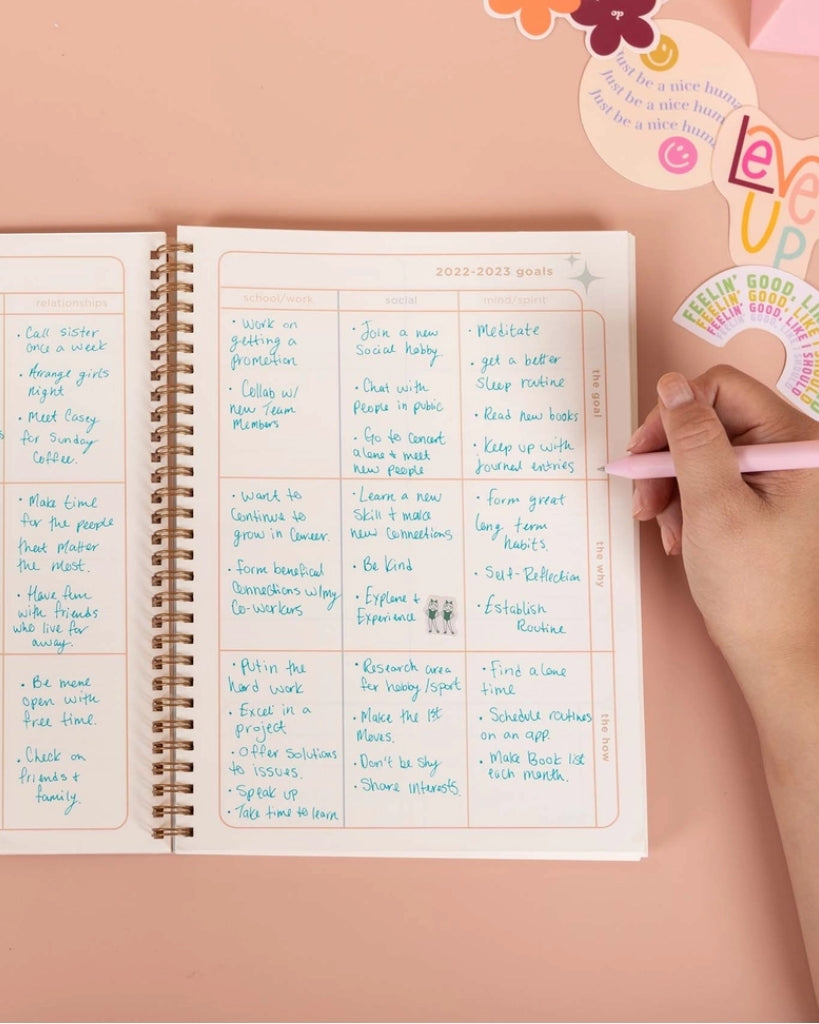 de
Just be a nice hum
Just be a nice hum
Just be a nice hum
Level
Up
FEELIN' GOOD, LIK
FEELIN' GOOD, LIKE I SHOULD
FEELIN' GOOD, LIKE I SHOULD
2022-2023 goals
relationships
• Call sister
once a week
• Arrange girls
Night
• Meet Casey
for Sunday
Coffee.
• Make time
for the people
that matter
the most.
• Have fun
with friends
who live far
away.
• Be more
open with
free time.
• Check on
friends +
family.
school/work
social
mind/spirit
the goal
• Work on
getting a
promotion
• Collab w/
new Team
Members
• Join a new
Social hobby.
• Chat with
people in public
• Go to concert
alone + meet
new people
• Meditate
• get a better
Sleep routine
• Read new books
• Keep up with
journal entries
the why
• Want to
Continue to
grow in Career.
• form beneficial
Connections w/my
Co-workers
• Learn a new
Skill + make
new Connections
• Be Kind
• Explore +
Experience
• form great
long term
habits.
• Self-Reflection
• Establish
Routine
the how
• Put in the
hard work
• Excel in a
project
• Offer Solutions
to issues.
• Speak up
• Take time to learn
• Research area
for hobby/sport
• Make the 1st
Moves.
• Don't be shy
• Share Interests.
• Find alone
time
• Schedule routines
on an app.
• Make Book list
each month.